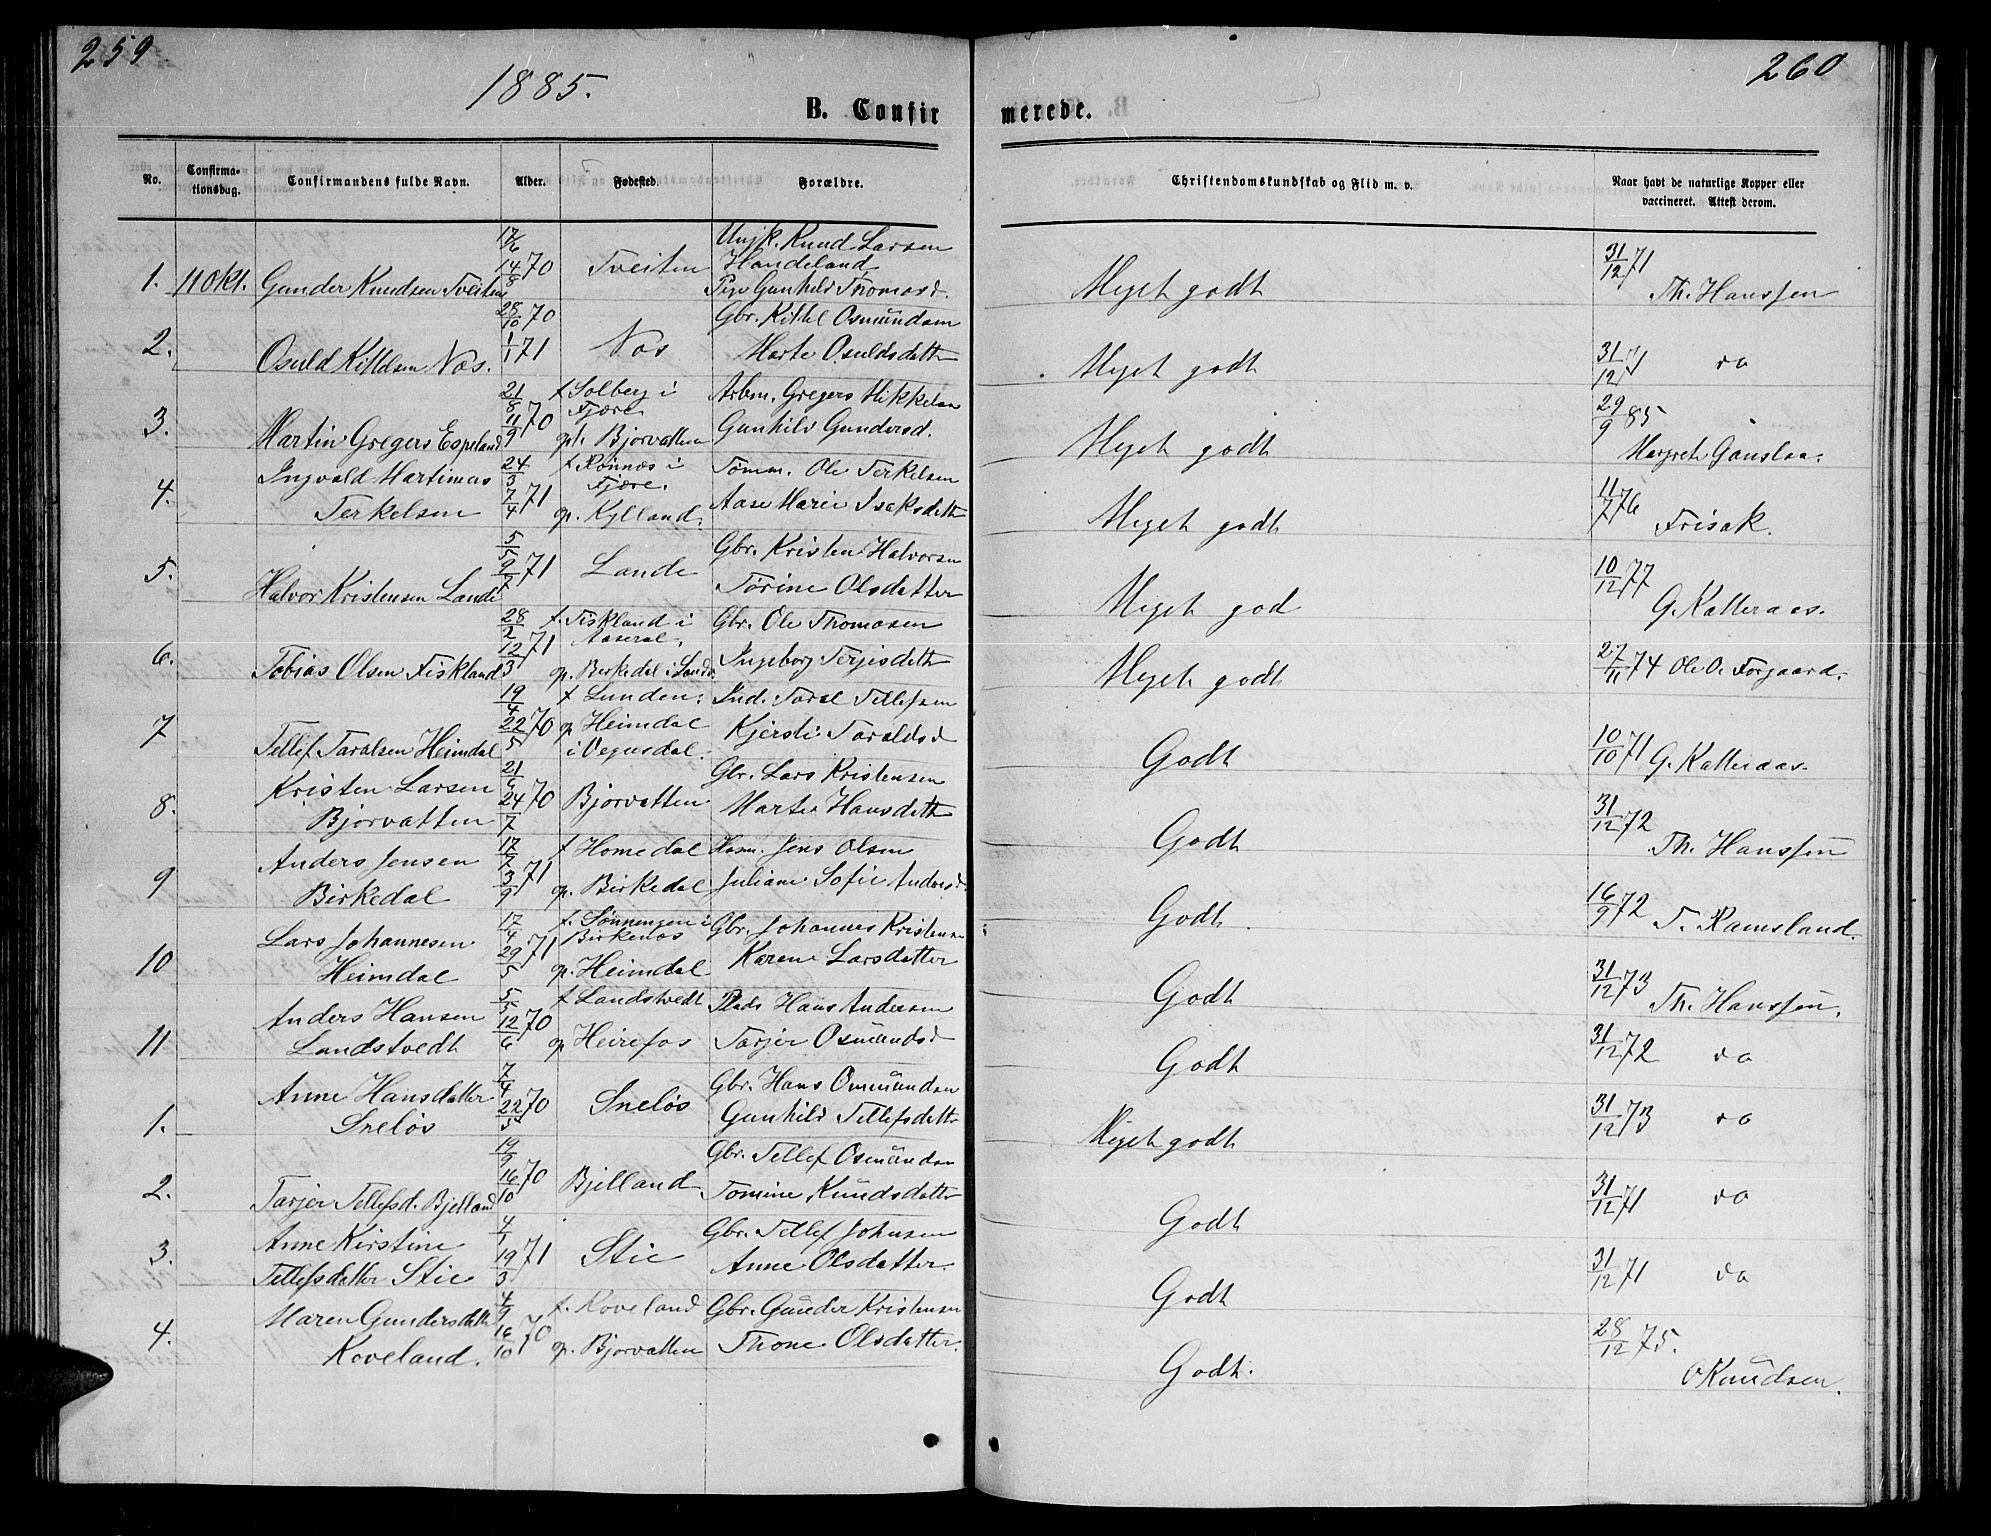 259.
260
1885.
B. Confir
merede.
No.
Confirma-
tionsdag.
Confirmandens fulde Navn.
Alder.
Fødested.
Forældre.
Christendomskundskab og Flid m. v.
Naar havt de naturlige Kopper eller
vaccineret. Attest derom.
1. 11 Okt. Gunder Knudsen Tveiten 17/6 14/8 70 Tveiten
Ungk. Knud Larsen
Handeland
Pige Gunhild Thomasd.
Meget godt 31/12 71
Th. Hanssen
2. Osuld Kittelsen Nos. 28/10 70 1/1 71 Nos
Gbr. Kittel Osmundsen
Marte Osuldsdatter
Meget godt 31/12 71 do
3. Martin Gregers Espeland 21/8 11/9 70
f. Solberg i
Fjære
opt. Bjorvatten
Arbm. Gregers Mikkelsen
Gunhild Gundersd.
Meget godt 29/9 85
Margrete Gauslaa.
4. Ingvald Martinias
Terkelsen 24/3 7/4 71
f. Rønnes i
Fjære.
op. Kylland.
Tømm. Ole Terkelsen
Aase Marie Isaksdatter
Meget godt 11/7 76
Frisak.
5. Halvor Kristensen Lande 5/5 9/7 71 Lande
Gbr. Kristen Halvorsen
Tørine Olsdatter
Meget god 10/12 77
G. Katteraas.
6. Tobias Olsen Fiskland 28/2 12/3 71
f. Fiskland i
Aaseral.
op. Birkedal i Landv.
Gbr. Ole Thomasen
Ingeborg Terjisdatter
Meget godt 27/11 74 Ole O. Forgaard.
7 Tellef Taralsen Heimdal 19/4 22/5 70
f. Lunden.
op. Heimdal
i Vegusdal.
Ind. Taral Tellefsen
Kjersti Taraldsd
Godt 10/10 71 G. Katteraas.
8. Kristen Larsen
Bjorvatten 21/6 24/7 70 Bjorvatten
Gbr. Lars Kristensen
Marte Hansdatter
Godt 31/12 72
Th. Hanssen
9 Anders Jensen
Birkedal 17/7 3/9 71
f. Homedal
op. Birkedal
Husm. Jens Olsen
Juliane Sofie Andersd.
Godt 16/9 72
T. Ramsland.
10 Lars Johannesen
Heimdal 17/4 29/5 71
f. Sønningen i
Birkenes
op. Heimdal
Gbr. Johannes Kristensen
Karen Larsdatter
Godt 31/12 73
Th. Hanssen.
11 Anders Hansen
Landstvedt 5/5 12/6 70
f. Landstvedt
op Heirefos
Plads Hans Andersen
Tarjer Osmundsd
Godt 31/12 72 do
1. Anne Hansdatter
Sneløs 7/4 22/5 70 Sneløs
Gbr. Hans Osmundsen
Gunhild Tellefsdatter
Meget godt 31/12 73 do
2. Tarjer Tellefsd. Bjelland 19/9 16/10 70 Bjelland
Gbr. Tellef Osmundsen
Tomine Knudsdatter
Godt 31/12 71 do
3. Anne Kirstine
Tellefsdatter Stie 4/1 19/3 71 Stie
Gbr. Tellef Johnsen
Anne Olsdatter.
Godt 31/12 71 do
4. Maren Gundersdatter
Koveland. 4/9 16/10 70
f. Koveland
op. Bjorvatten
Gbr. Gunder Kristensen
Thone Olsdatter.
Godt. 28/12 75.
O Knudsen.